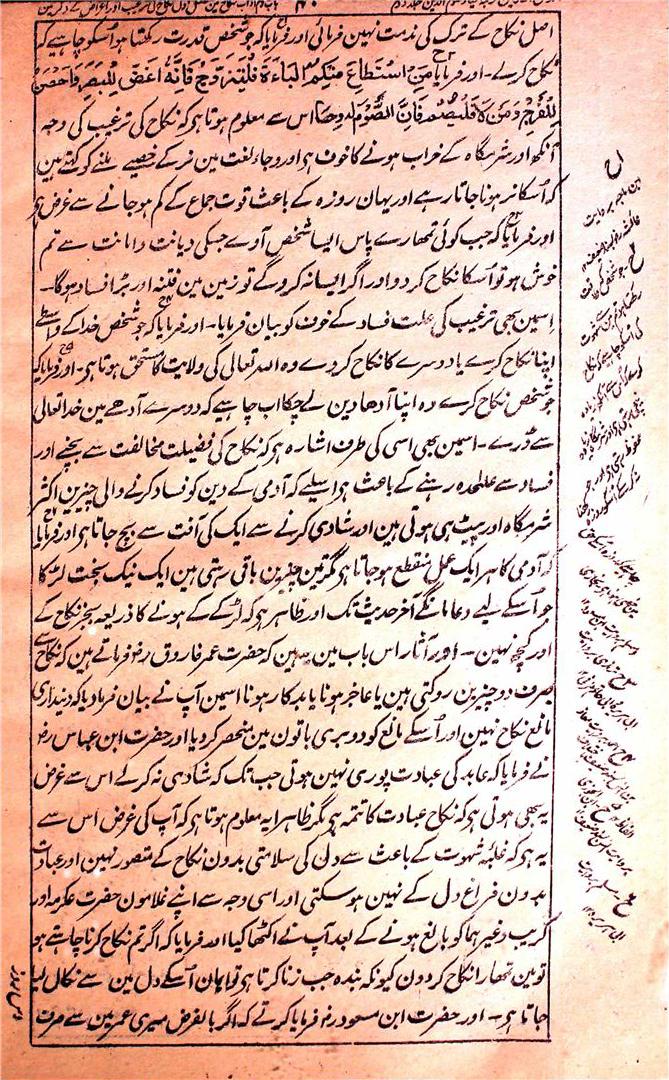 اصل نکاح کے ترک کی مذمت نہین فرمائی اور فرمایا کہ جو شخص قدرت رکھتا ہو اسکو چاہیے کہ
نکاح کرلے۔ اور فرمایا مَنِ اسْتَطَاعَ مِنْکُمُ الْبَاءَۃَ فَلْیَتَزَوَّجْ فَاِنَّہٗ اَغَضُّ لِلْبَصَرِ وَاَحْصَنُ
لِلْفَرْجِ وَمَنْ لَا فَلْیَصُمْ فَاِنَّ الصَّوْمَ لَہٗ وِجَاءٌ اس سے معلوم ہوتا ہو کہ نکاح کی ترغیب کی وجہ
آنکھ اور شرمگاہ کے خراب ہونے کا خوف ہو اور وجاء لغت مین نر کے خصیے ملنے کو کہتے ہین
کہ اُسکا نر ہونا جاتا رہے اور یہان روزہ کے باعث قوت جماع کے کم ہو جانے سے غرض ہو
اور فرمایا کہ جب کوئی تمھارے پاس ایسا شخص آوے جسکی دیانت و امانت سے تم
خوش ہو تو اُسکا نکاح کر دو اور اگر ایسا نہ کروگے تو زمین مین فتنہ اور بڑا فساد ہوگا۔
اِسمین بھی ترغیب کی علت فساد کے خوف کو بیان فرمایا۔ اور فرمایا کہ جو شخص خدا کے واسطے
اپنا نکاح کرے یا دوسرے کا نکاح کردے وہ اللہ تعالی کی ولایت کا مستحق ہوتا ہو۔ اور فرمایا کہ
جو شخص نکاح کرے وہ اپنا آدھا دین لے چکا اب چاہیے کہ دوسرے آدھے مین خدا تعالی
سے ڈرے۔ اسمین بھی اسی کی طرف اشارہ ہو کہ نکاح کی فضیلت مخالفت سے بچنے اور
فساد سے علٰحدہ رہنے کے باعث ہو اسلیے کہ آدمی کے دین کو فساد کرنے والی چیزین اکثر
شرمگاہ اور پیٹ ہی ہوتی ہین اور شادی کرنے سے ایک کی آفت سے بچ جاتا ہو اور فرمایا
کہ آدمی کا ہر ایک عمل منقطع ہو جاتا ہو مگر تین چیزین باقی رہتی ہین ایک نیک بخت لڑکا
جو اُسکے لیے دعا مانگے آخر حدیث تک اور ظاہر ہو کہ لڑکے کے ہونے کا ذریعہ بجز نکاح کے
اور کچھ نہین۔ اور آثار اس باب مین یہ ہین کہ حضرت عمر فاروق رضہ فرماتے ہین کہ نکاح سے
صرف دو چیزین روکتی ہین یا عاجز ہونا یا بدکار ہونا اسمین آپ نے بیان فرما دیا کہ دینداری
مانع نکاح نہین اور اُسکے مانع کو دو بُری باتون مین منحصر کر دیا اور حضرت ابن عباس رضہ
نے فرمایا کہ عابد کی عبادت پوری نہین ہوتی جب تک کہ شادی نہ کرلے اس سے غرض
یہ بھی ہوتی ہو کہ نکاح عبادت کا تتمہ ہو مگر ظاہرا یہ معلوم ہوتا ہو کہ آپ کی غرض اس سے
یہ ہو کہ غلبۂ شہوت کے باعث سے دل کی سلامتی بدون نکاح کے متصور نہین اور عبادت
بدون فراغ دل کے نہین ہو سکتی اور اسی وجہ سے اپنے غلامون حضرت عکرمہ اور
کریب وغیر ہما کو بالغ ہونے کے بعد آپ نے اکٹھا کیا اور فرمایا کہ اگر تم نکاح کرنا چاہتے ہو
تو مین تمھارا نکاح کر دون کیونکہ بندہ جب زنا کرتا ہو تو ایمان اُسکے دل مین سے نکال لیا
جاتا ہو۔ اور حضرت ابن مسعود رضہ فرمایا کرتے کہ اگر بالفرض میری عمر مین سے صرف